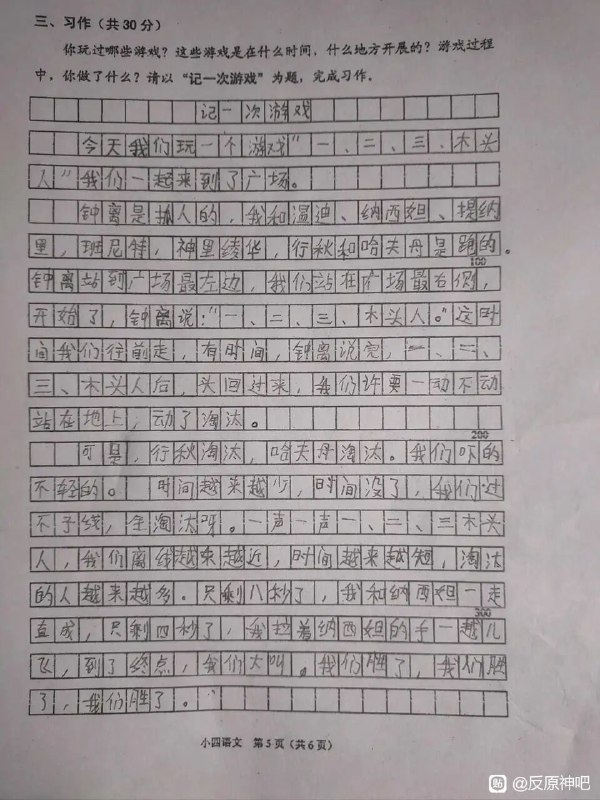 三、习作（共30分）
你玩过哪些游戏？这些游戏是在什么时间，什么地方开展的？游戏过程
中，你做了什么？请以“记一次游戏”为题，完成习作。
记一次游戏
今天我们玩一个游戏“一、二、三、木头
人”我们一起来到了广场。
钟离是抓人的，我和温迪、纳西妲、提纳
里，班尼特，神里绫华，行秋和哈夫丹是跑的。
100
钟离站到广场最左边，我们站在广场最右侧，
开始了，钟离说：“一、二、三、木头人。”这时
间我们往前走，有时间，钟离说完，一、二、
三、木头人后，头回过来，我们许要一动不动
站在地上，动了淘汰。
200
可是，行秋淘汰，哈夫丹淘汰。我们吓的
不轻的。时间越来越少，时间没了，我们过
不了线，全淘汰呀。一声一声一、二、三木头
人，我们离线越来越近，时间越来越短，淘汰
的人越来越多。只剩八秒了，我和纳西妲一走
300
直成，只剩四秒了，我拉着纳西妲的手一越儿
飞，到了终点，我们大叫。我们胜了，我们胜
了，我们胜了。
小四语文 第5页（共6页）
贴 @反原神吧